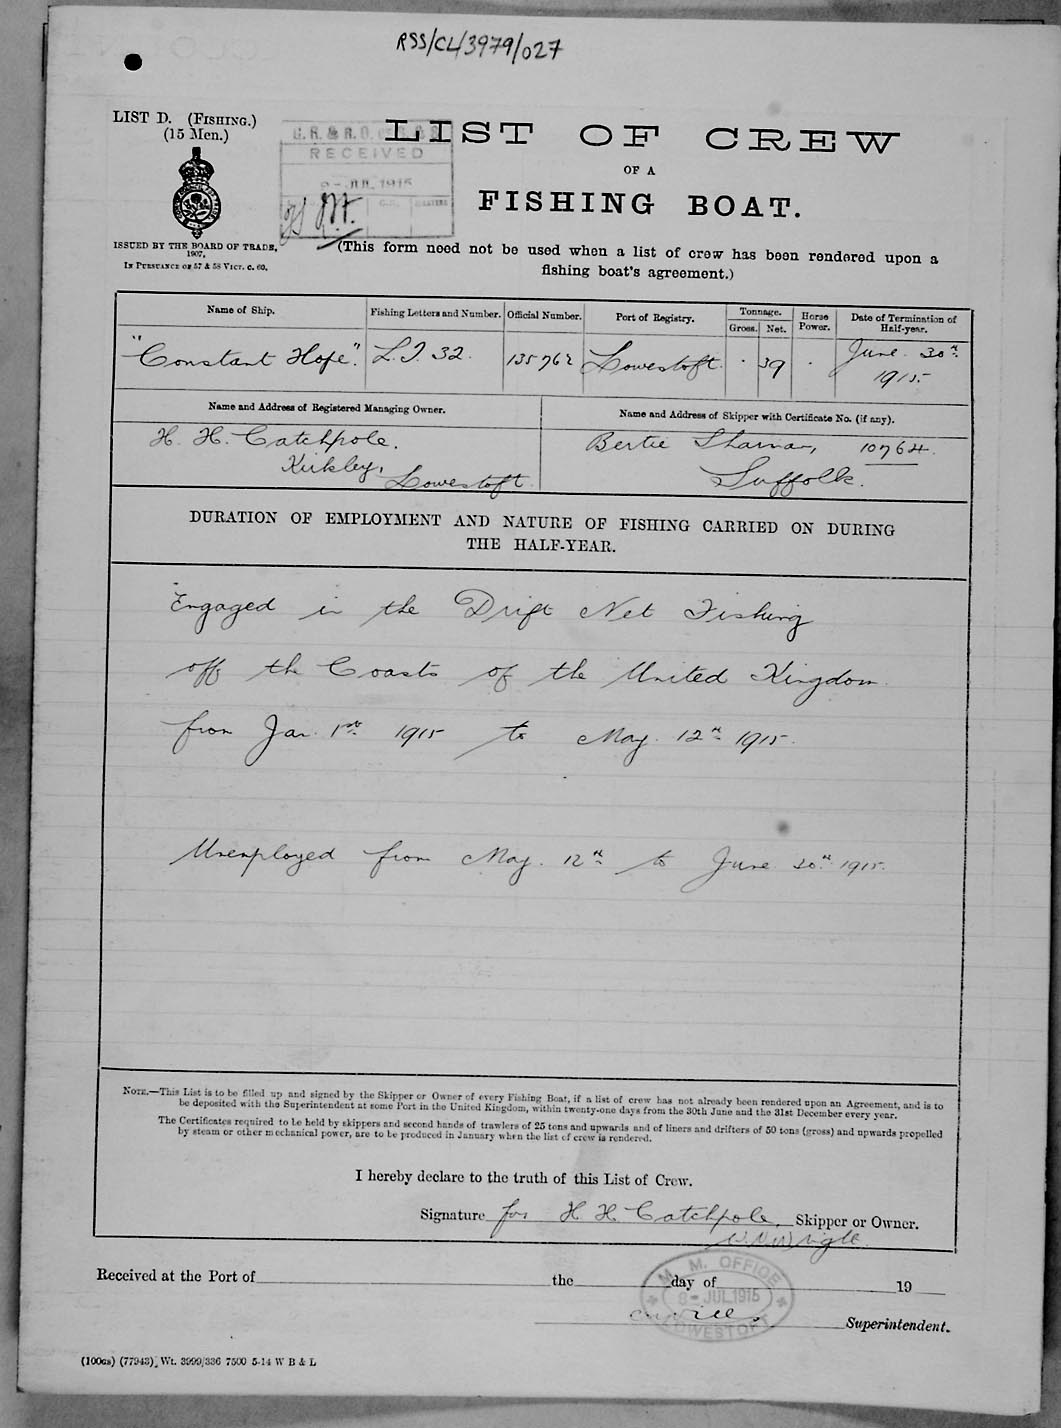 RSS/CL/3979/027
LIST D. (FISHING.)
(15 Men.)
RECEIVED
JUL 1915
LIST OF CREW
OF A
FISHING BOAT.
ISSUED BY THE BOARD OF TRADE,
1907,
IN PURSUANCE OF 57 & 58 VICT. C. 60.
(This form need not be used when a list of crew has been rendered upon a
fishing boat's agreement.)
Name of Ship. Fishing Letters and Number. Official Number. Port of Registry. Tonnage. Gross. Net. Horse Power. Date of Termination of Half-year.
"Constant Hope". L.T. 32. 135762 Lowestoft. 39 June 30th 1915.
Name and Address of Registered Managing Owner. Name and Address of Skipper with Certificate No. (if any).
H. H. Catchpole. Bertie 10764.
Kirkley, Lowestoft. Suffolk.
DURATION OF EMPLOYMENT AND NATURE OF FISHING CARRIED ON DURING
THE HALF-YEAR.
Engaged in the Drift Net Fishing
off the Coasts of the United Kingdom
from Jan. 1st 1915 to May. 12th 1915.
Unemployed from May. 12th to June 30th 1915.
NOTE.—This List is to be filled up and signed by the Skipper or Owner of every Fishing Boat, if a list of crew has not already been rendered upon an Agreement, and is to
be deposited with the Superintendent at some Port in the United Kingdom, within twenty-one days from the 30th June and the 31st December every year.
The Certificates required to be held by skippers and second hands of trawlers of 25 tons and upwards and of liners and drifters of 50 tons (gross) and upwards propelled
by steam or other mechanical power, are to be produced in January when the list of crew is rendered.
I hereby declare to the truth of this List of Crew.
Signature for H. H. Catchpole, Skipper or Owner.
Received at the Port of the day of 19
M. M. OFFICE
8 – JUL 1915
LOWESTOFT
Superintendent.
(100GS) (77943). Wt. 3999/336 7500 5-14 W B & L